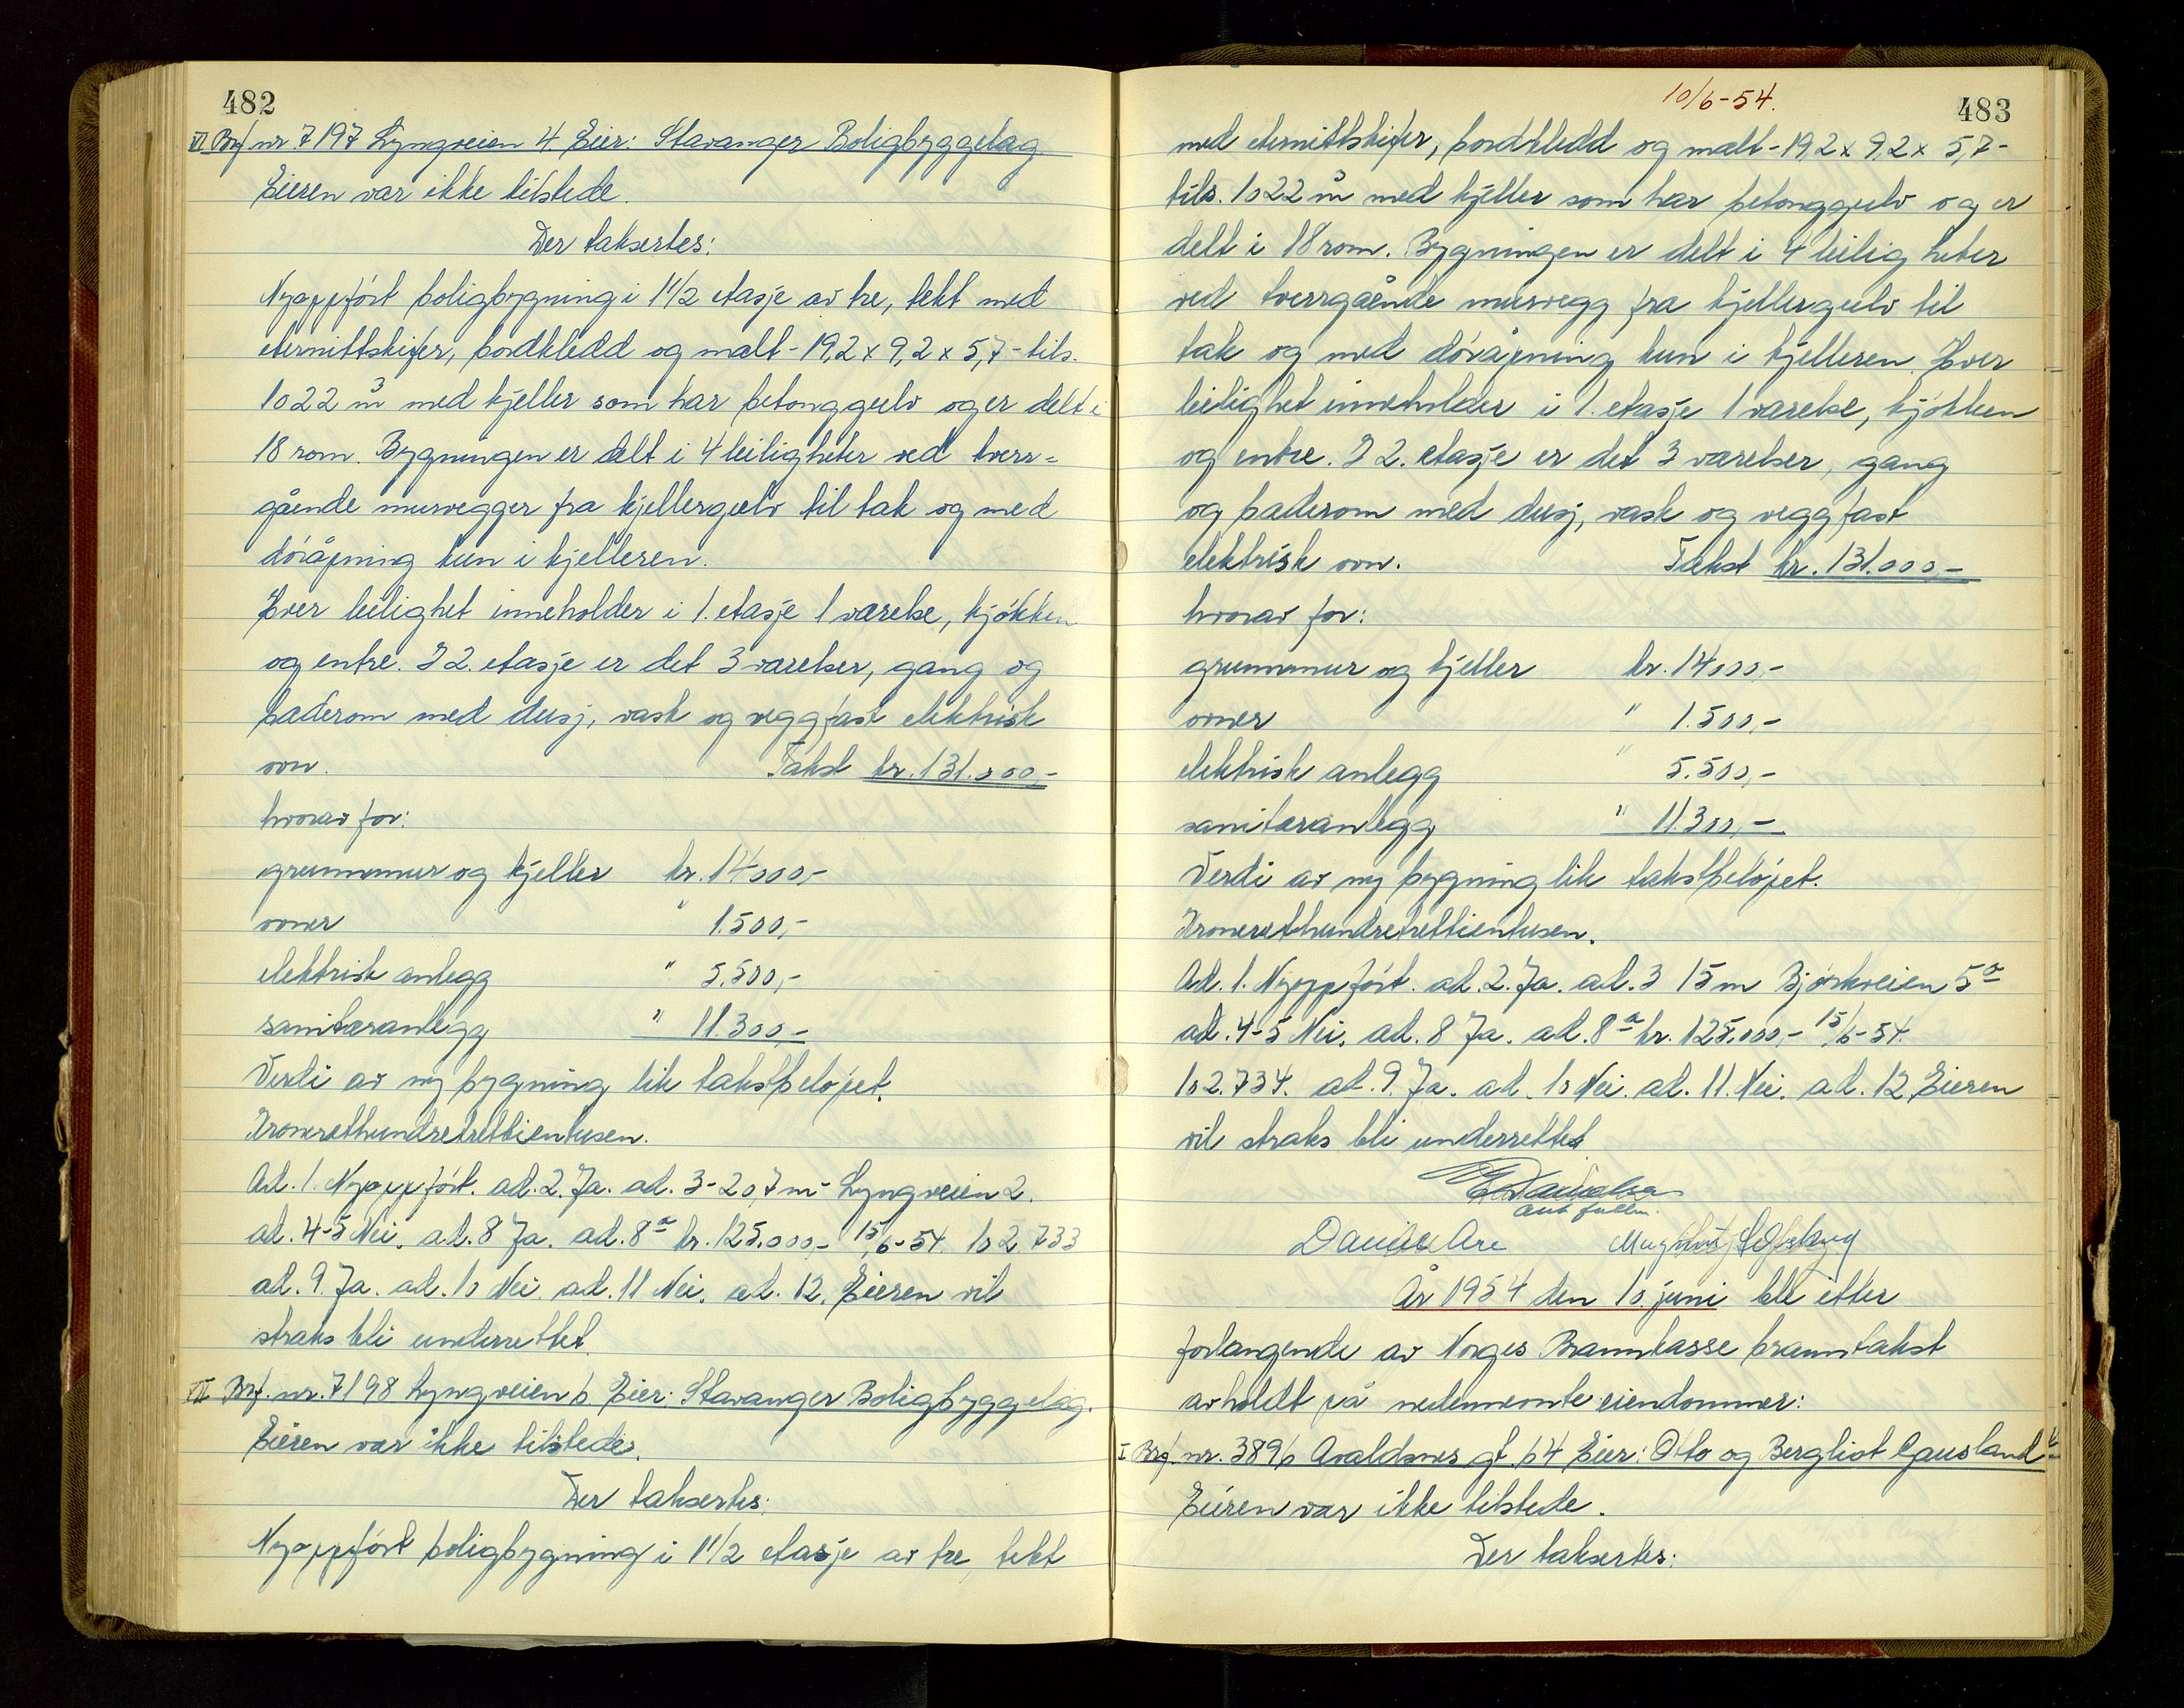 482
VI Brf nr. 7197 Lyngveien 4 Eier: Stavanger Boligbyggelag
Eieren var ikke tilstede.
Der taksertes:
Nyoppført boligbygning i 1 1/2 etasje av tre, tekt med
eternittskifer, bordkledd og malt - 19,2 x 9,2 x 5,7 - tils.
1022 m3 med kjeller som har betonggulv og er delt i
18 rom. Bygningen er delt i 4 leiligheter ved tverr=
gående murvegger fra kjellergulv til tak og med
döråpning kun i kjelleren.
Hver leilighet inneholder i 1. etasje 1 værelse, kjökken
og entre. I 2. etasje er det 3 værelser, gang og
baderom med dusj, vask og veggfast elektrisk
ovn. Takst kr. 131.000,-
hvorav for:
grunnmur og kjeller kr. 14000,-
ovner " 1.500,-
elektrisk anlegg " 5.500,-
sanitæranlegg " 11.300,-
Verdi av ny bygning lik takstbeløpet.
Kroneretthundretrettientusen.
Ad. 1. Nyoppført. ad. 2. Ja. ad. 3 - 20,7 m - Lyngveien 2.
ad. 4-5 Nei. ad. 8 Ja. ad. 8a kr. 125.000,- 15/6-54 102733
ad. 9. Ja. ad. 10 Nei. ad. 11 Nei. ad. 12. Eieren vil
straks bli underrettet.
VII Brf. nr. 7198 Lyngveien 6 Eier: Stavanger Boligbyggelag.
Eieren var ikke tilstede.
Der taksertes:
Nyoppført boligbygning i 1 1/2 etasje av tre tekt
10/6-54.
483
med eternittskifer, bordkledd og malt - 19,2 x 9,2 x 5,7 -
tils. 1022 m3 med kjeller som har betonggulv og er
delt i 18 rom. Bygningen er delt i 4 leiligheter
ved tverrgående murvegg fra kjellergulv til
tak og med döråpning kun i kjelleren. Hver
leilighet inneholder i 1. etasje 1 værelse, kjökken
og entre. I 2. etasje er det 3 værelser, gang
og baderom med dusj, vask og veggfast
elektrisk ovn. Takst kr. 131.000,-
hvorav for:
grunnmur og kjeller kr. 14000,-
ovner " 1.500,-
elektrisk anlegg " 5.500,-
sanitæranlegg " 11.300,-
Verdi av ny bygning lik takstbeløpet.
Kroneretthundretrettientusen.
Ad. 1. Nyoppført. ad. 2. Ja. ad. 3 15 m Bjørkveien 5a
ad. 4-5 Nei. ad. 8 Ja. ad. 8a kr. 125.000,- 15/6-54.
102.734. ad. 9. Ja. ad. 10 Nei. ad. 11. Nei. ad. 12. Eieren
vil straks bli underrettet
År 1954 den 10. juni ble etter
forlangende av Norges Brannkasse branntakst
avholdt på nedennevnte eiendommer:
I Brf. nr. 3896 Avaldsnes gt. 64 Eier: Otto og Bergliot Gausland
Eieren var ikke tilstede.
Der taksertes: